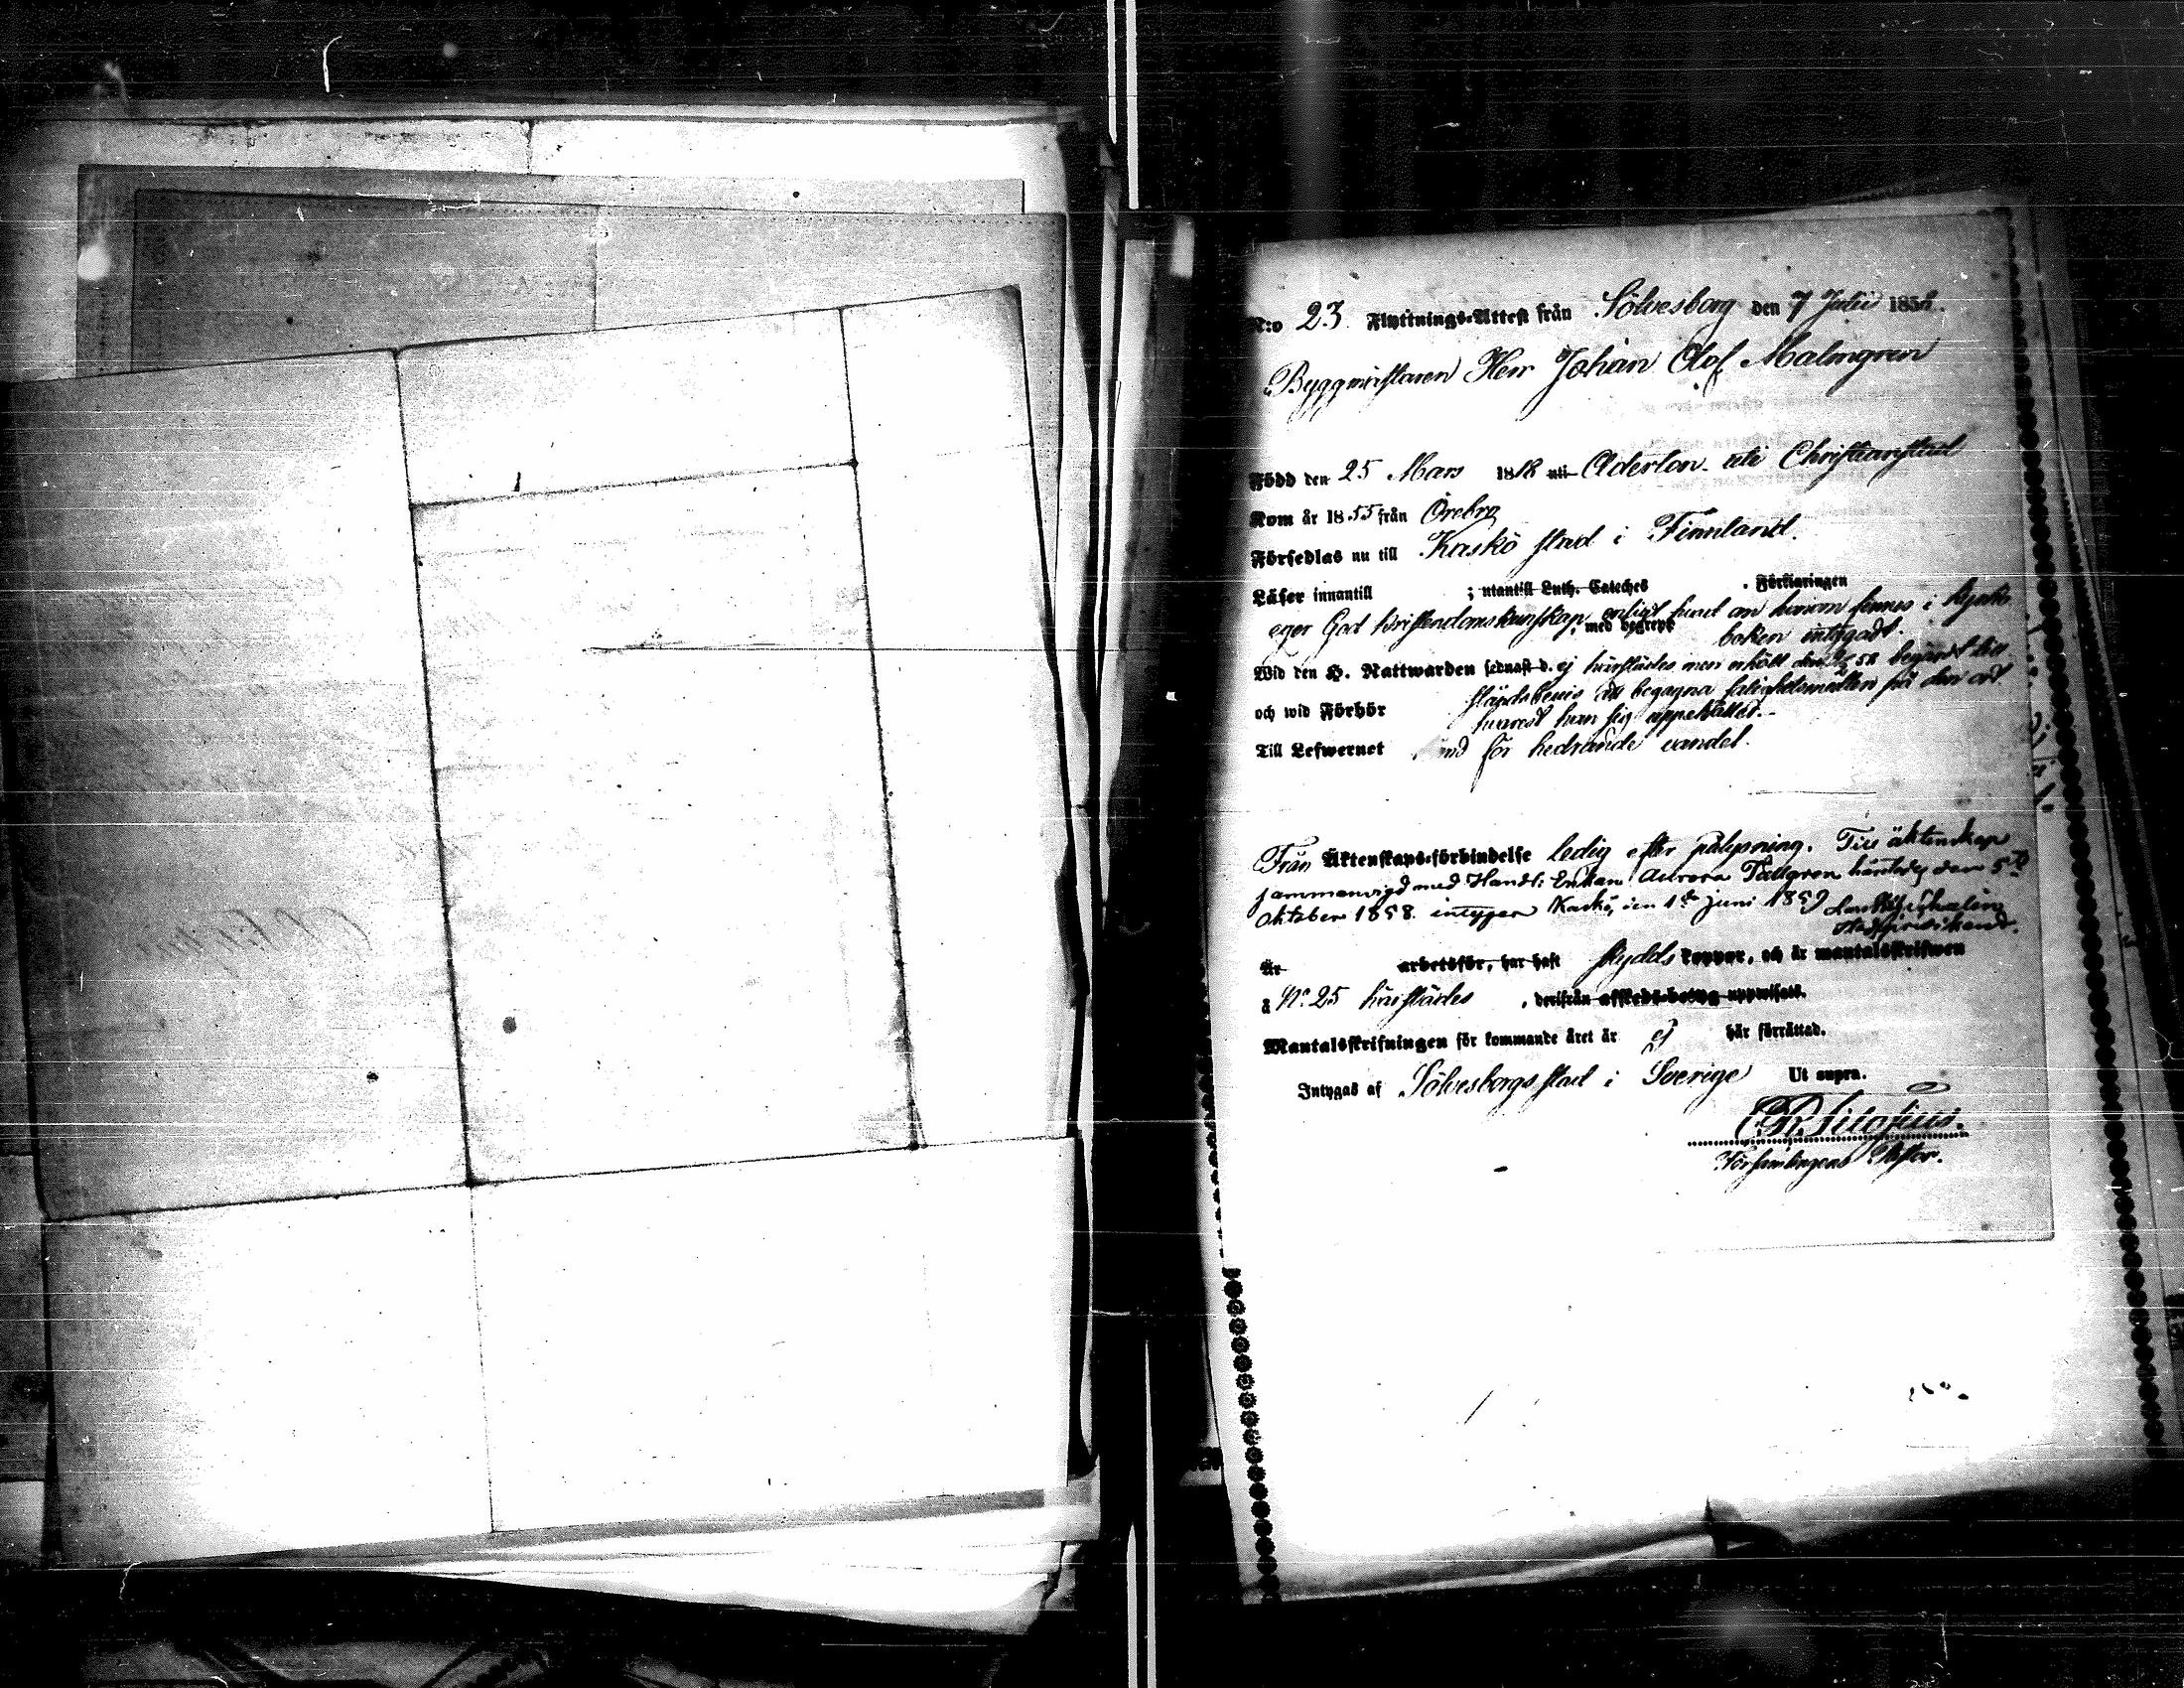 N:o 23. Flyttnings-Attest från Sölvesborg den 7 Julii 1858.
Byggmästaren Herr Johan Olof Malmgren
Född den 25 Mars 1818 uti Christianstad
Kom år 1855 från Örebro
Försedlas nu till Kaskö stad i Finnland.
Läser innantill ; utantill Luth. Cateches . Förklaringen
eger God kristendomskunskap enligt hvad om honom finnes i kyrko
, med begrepp boken intygadt.
Wid den H. Nattwarden sednast d. ej härstädes men erhållt den 58 begärdt till
ståndsbevis att begagna salighetsmedlen på den ort
och wid Förhör hvarest han sig uppehållit.-
Till Lefwernet känd för hedrande vandel.
Från Äktenskaps-förbindelse ledig efter pålysning. Till äktenskap
sammanvigd med Handl: Enkan Aurora Tallgren härstedes den 5te
Oktober 1858. intygar Kaskö, den 1ste Juni 1859
Är arbetsför, har haft skydds koppor, och är mantalsskrifwen
å No. 25 härstädes , derifrån afskeds-betyg uppwisats.
Mantalsskrifningen för kommande året är ej här förrättad.
Intygas af Sölvesborgs stad i Sverige Ut supra.
Församlingens Pastor.